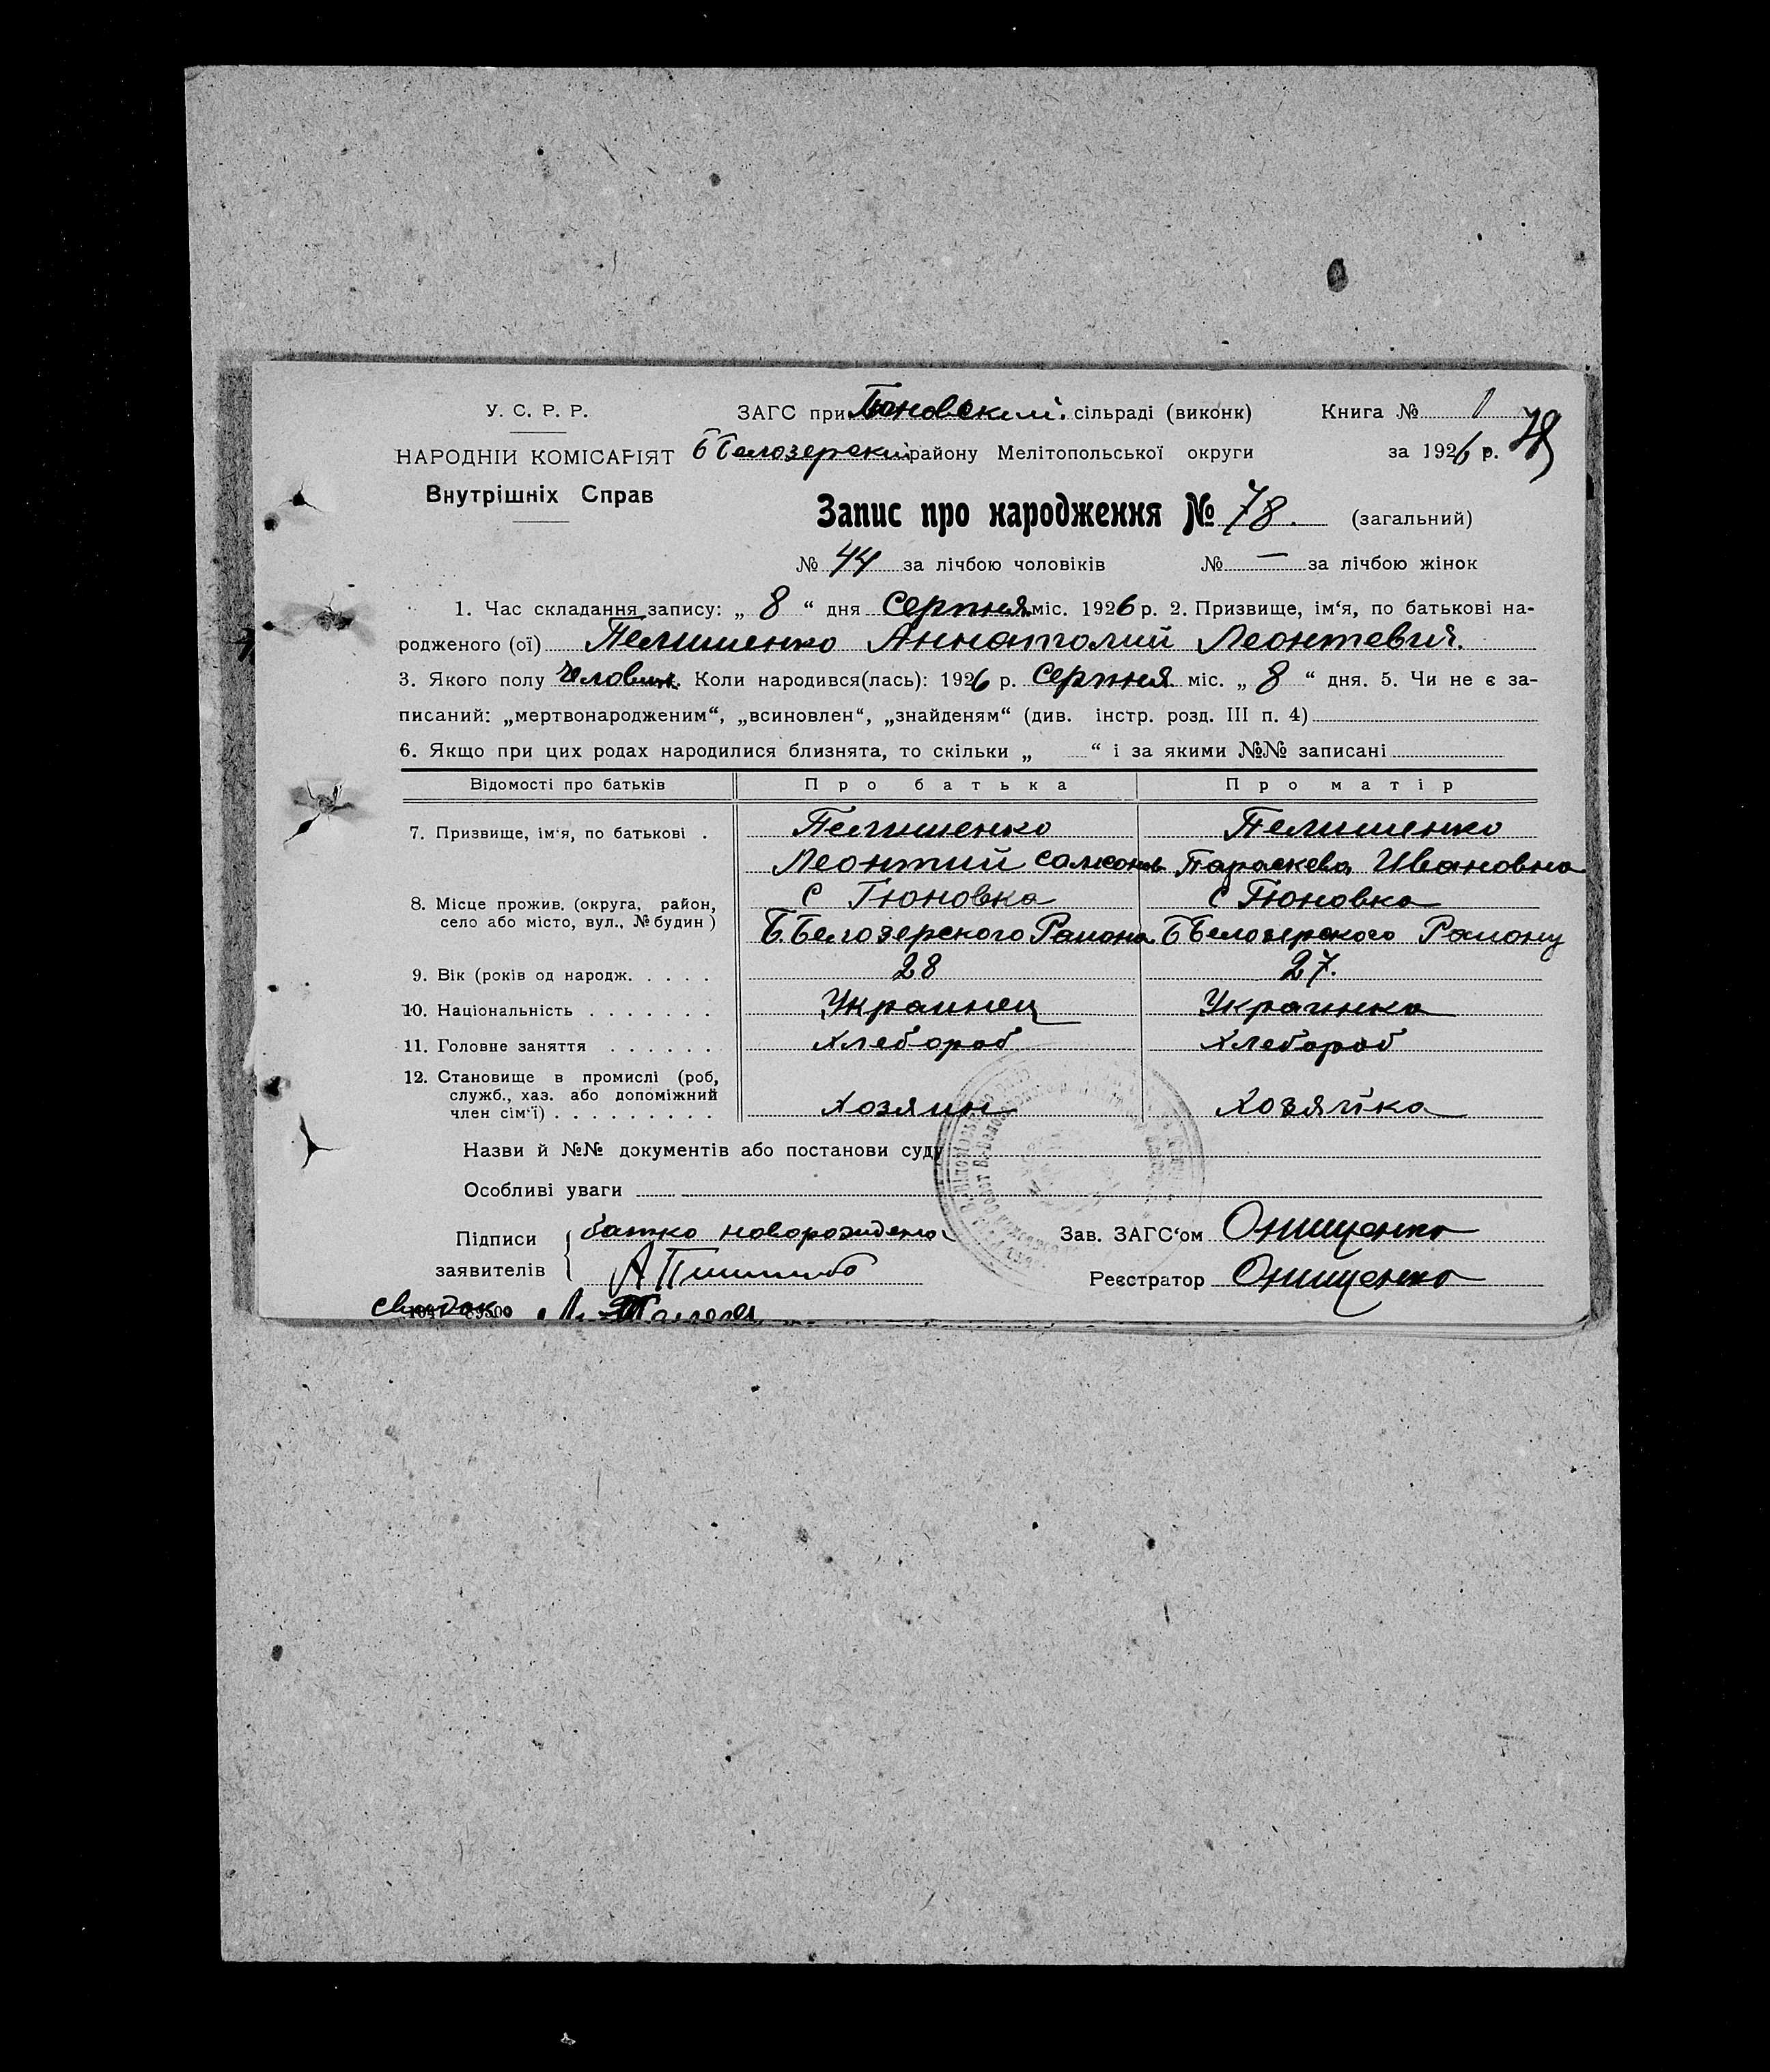 У. С. Р. Р.
НАРОДНІЙ КОМІСАРІЯТ
Внутрішніх Справ
ЗАГС при Гюновский сільраді (виконк) Книга № 1
Б Белозерский району Мелітопольської округи за 1926 р. 78
Запис про народження № 78. (загальний)
№ 44 за лічбою чоловіків № — за лічбою жінок
1. Час складання запису: „ 8 “ дня Серпня міс. 1926 р. 2. Призвище, ім‘я, по батькові на-
родженого (ої) Пелишенко Аннатолий Леонтевич.
3. Якого полу Человик. Коли народився(лась): 1926 р. Серпня міс. „ 8 “ дня. 5. Чи не є за-
писаний: „мертвонародженим“, „всиновлен“, „знайденям“ (див. інстр. розд. III п. 4)
6. Якщо при цих родах народилися близнята, то скільки „ “ і за якими №№ записані
Відомості про батьків Про батька Про матір
7. Призвище, ім‘я, по батькові . Пелишенко Пелишенко
Леонтий Самсонов Параскева Ивановна
8. Місце прожив. (округа, район, С Гюновка С Гюновка
село або місто, вул., № будин) Б. Белозерского Района Б Белозерского Району
9. Вік (років од народж. . . . . 28 27.
10. Національність . . . . . . . Украинец Украинка
11. Головне заняття . . . . . . Хлебороб Хлебороб
12. Становище в промислі (роб,
служб., хаз. або допоміжний
член сім‘ї) . . . . . . . . . Хозяин Хозяйка
Назви й №№ документів або постанови суду
Особливі уваги
Підписи батко новорожденого Зав. ЗАГС‘ом Онищенко
заявителів Реєстратор Онищенко
Свидок